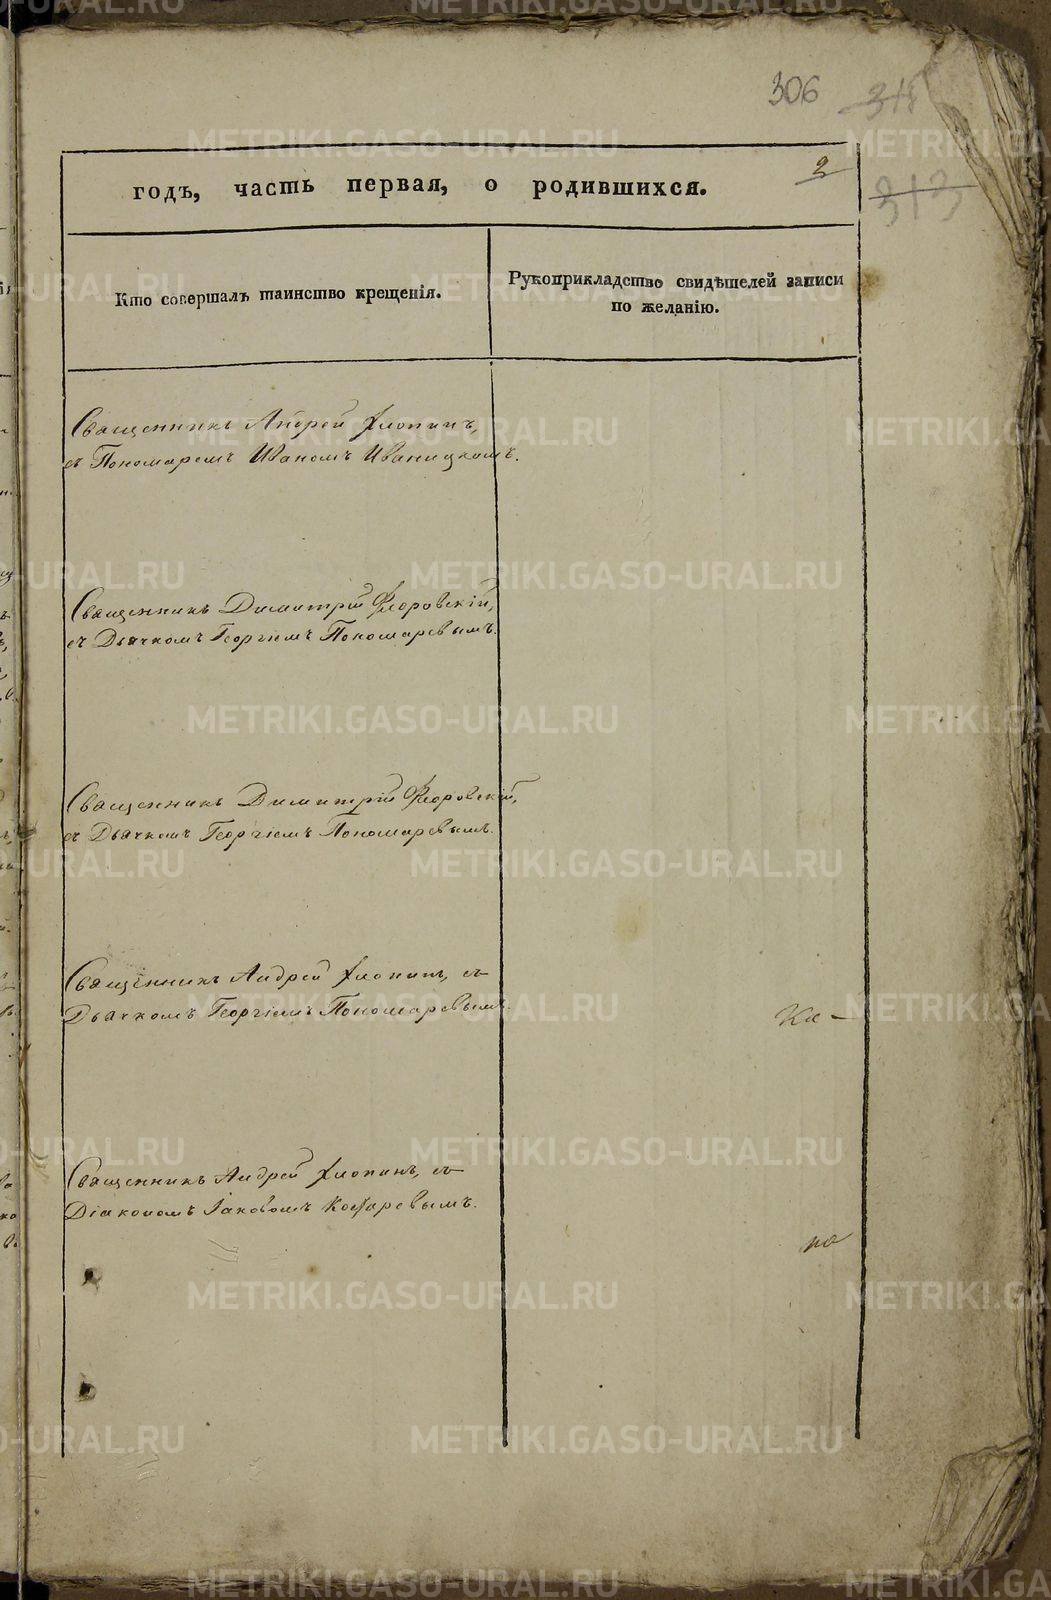 306 315
313
2
годъ, часть первая, о родившихся.
Кто совершалъ таинство крещенія.
Рукоприкладство свидѣтелей записи
по желанію.
Священникъ Андрей Хлопинъ,
съ Пономаремъ Иваномъ Иваницкомъ.
Священникъ Димитрій Флоровскій,
съ Дьячкомъ Георгіемъ Пономаревымъ.
Священникъ Димитрій Флоровскій,
съ Дьячкомъ Георгіемъ Пономаревымъ.
Священникъ Андрей Хлопинъ, съ
Дьячкомъ Георгіемъ Пономаревымъ.
Ка-
Священникъ Андрей Хлопинъ, съ
Діакономъ Іаковомъ Косаревымъ.
по
METRIKI.GASO-URAL.RU